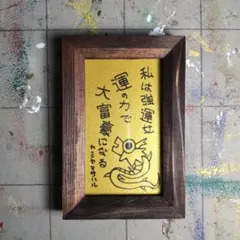 私は強運女
運の力で
大富豪になる